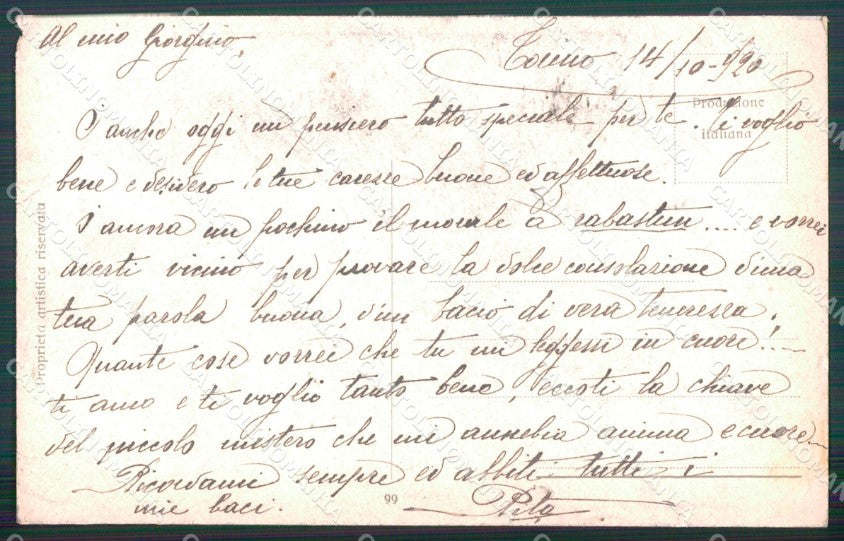 Al mio Giorgino,
Torino 14/10-920
Produzione
italiana
E anche oggi un pensiero tutto speciale per te. Ti voglio
bene e desidero le tue carezze buone ed affettuose.
E ancora un pochino il morale a rabastun.... e vorrei
averti vicino per provare la dolce consolazione d'una
tua parola buona, d'un bacio di vera tenerezza.
Quante cose vorrei che tu mi leggessi in cuore!....
ti amo e ti voglio tanto bene, eccoti la chiave
del piccolo mistero che mi annebia anima e cuore
Ricordami sempre ed abbiti tutti i
mie baci.
Rita
99
Proprietà artistica riservata
CARTOLINOMANIA